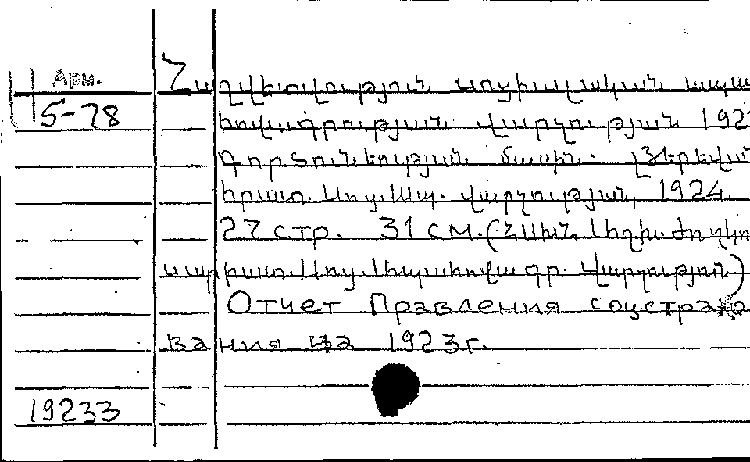 Арм.
5-78
Հաղվետվություն սոցիալական ապա
հովագրության վարչության 192
Գործունեության մասին. Երեվան
հրատ. Սոց. Ապ. վարչության, 1924.
27 стр. 31 см. (ՀՍԽՀ Աշխ. ժողկո
սարիատ. Սոց. Ապահովագր. Վարչություն)
Отчет Правления соцстрахо
вания за 1923г.
19233